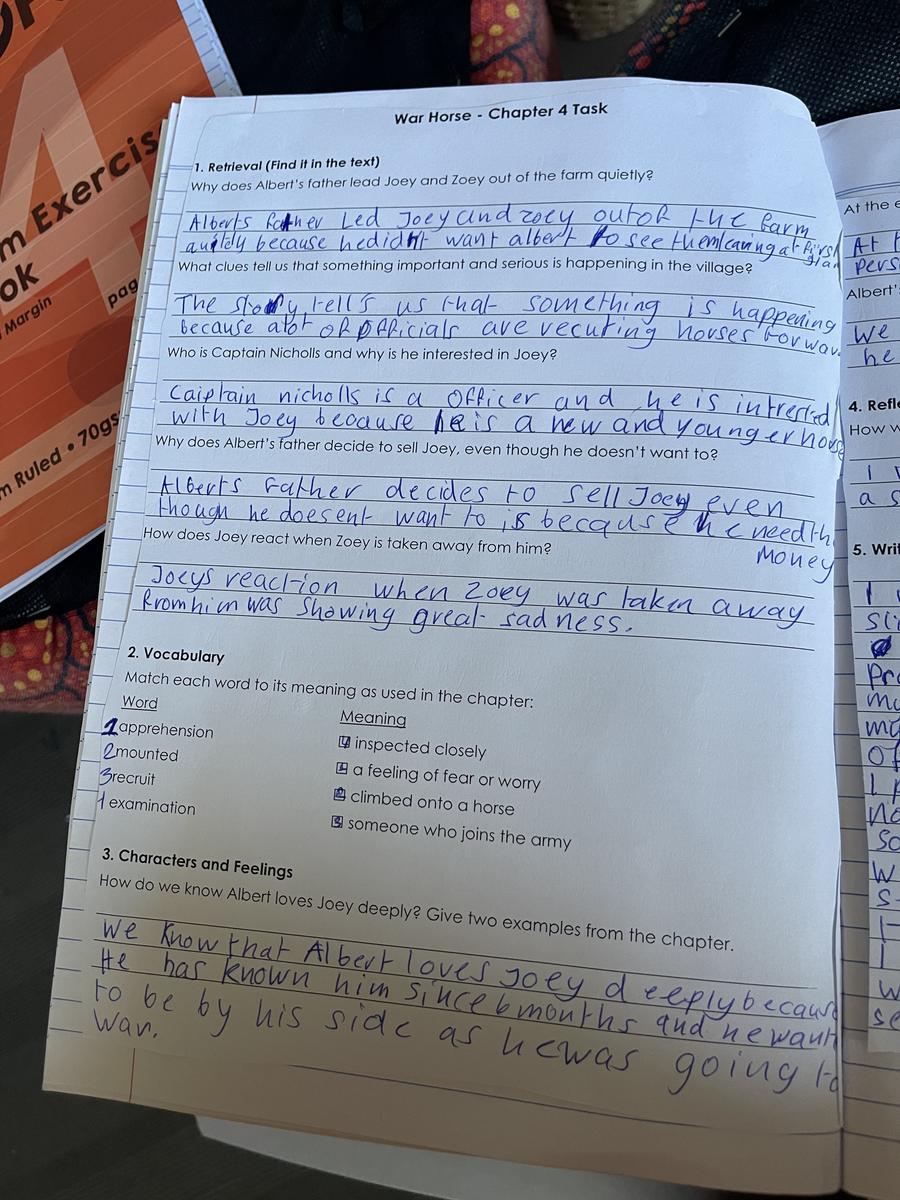 4
m Exercise
ok
Margin
pag
m Ruled • 70gs
War Horse - Chapter 4 Task
1. Retrieval (Find it in the text)
Why does Albert's father lead Joey and Zoey out of the farm quietly?
Alberts father Led Joey and zoey out of the farm
because he didn't want albert to see them leaving at first
What clues tell us that something important and serious is happening in the village?
The story tells us that something is happening
because alot of officials are recuting horses for war.
Who is Captain Nicholls and why is he interested in Joey?
Caiptain nicholls is a officer and he is intrested
with Joey because he is a new and younger horse
Why does Albert's father decide to sell Joey, even though he doesn't want to?
Alberts father decides to sell Joey even
though he doesent want to is because he need th
money
How does Joey react when Zoey is taken away from him?
Joeys reaction when Zoey was taken away
from him was showing great sadness.
2. Vocabulary
Match each word to its meaning as used in the chapter:
Word
Meaning
1 apprehension
4 inspected closely
2 mounted
1 a feeling of fear or worry
3 recruit
2 climbed onto a horse
examination
3 someone who joins the army
3. Characters and Feelings
How do we know Albert loves Joey deeply? Give two examples from the chapter.
We know that Albert loves Joey deeply becaus
He has known him since 6 months and he want
to be by his side as he was going to
war.
At the e
At
pers
Albert'
we
he
4. Refle
How w
I
a s
5. Writ
I
Pro
mu
of
I
no
so
w
s
w
se